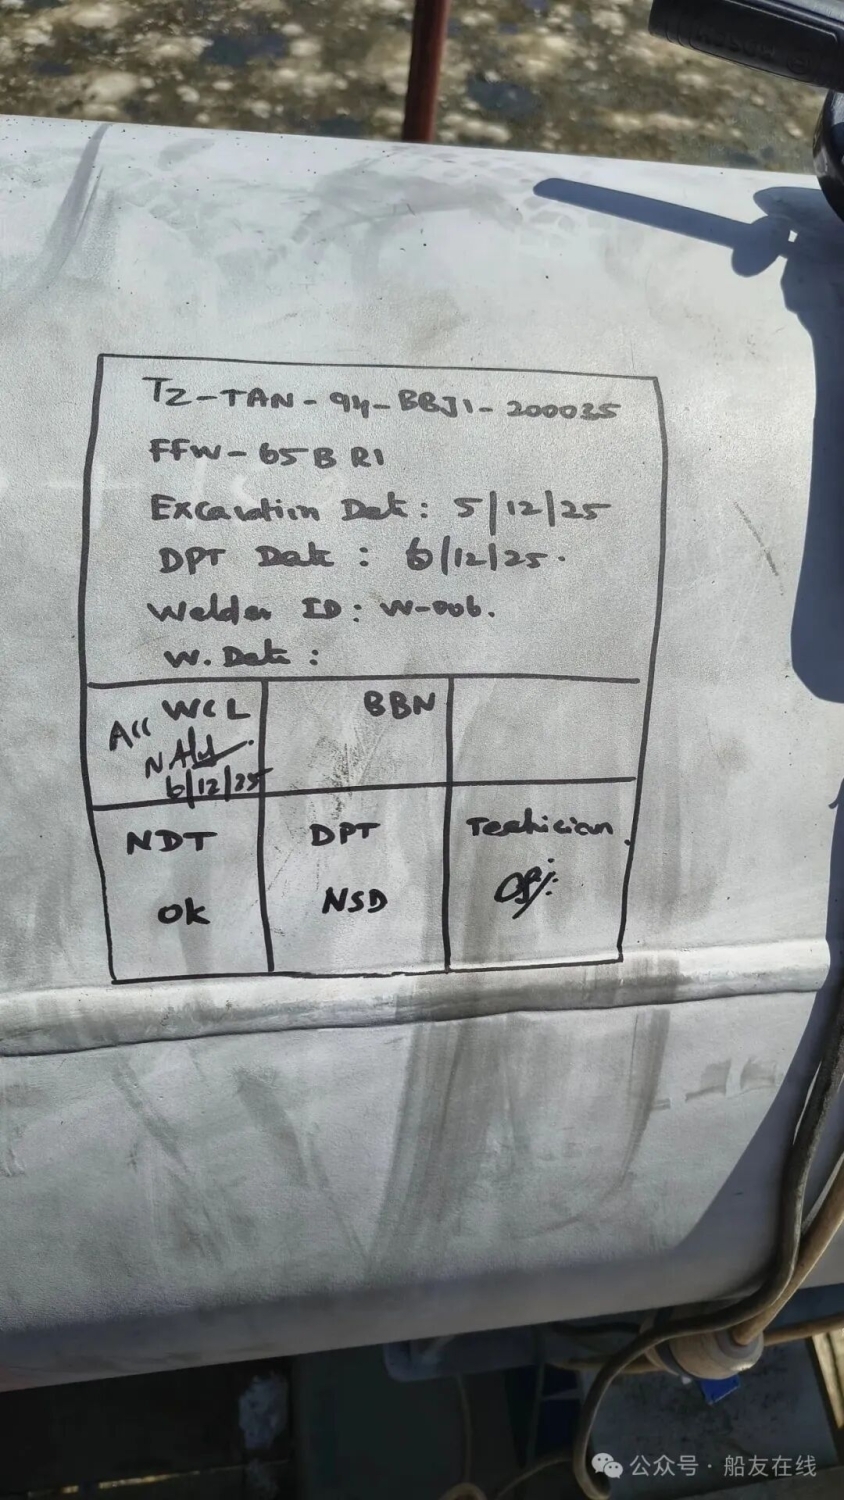 TZ-TAN-94-BBJ1-200035
FFW-65B R1
Excavation Date: 5/12/25
DPT Date: 6/12/25.
Welder ID: W-006.
W. Date:
WCL
BBN
Acc
6/12/25
NDT
DPT
Techician
Ok
NSD
公众号·船友在线